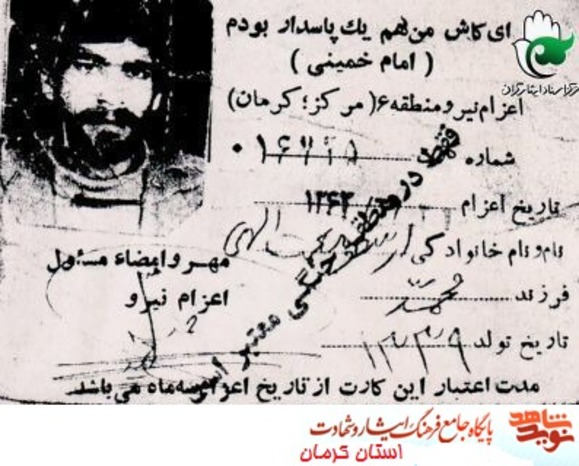 ای کاش من هم یك پاسدار بودم
( امام خمینی )
مرکز اسناد ایثارگران
اعزام نیرو منطقه ۶( مرکز؛ کرمان)
شماره
تاریخ اعزام ۱۳۶۲
نام و نام خانوادگی
فرزند محمد
تاریخ تولد
مهر و امضاء مسئول
اعزام نیرو
فقط در منطقه جنگی معتبر است
مدت اعتبار این کارت از تاریخ اعزام سه ماه می باشد
نوید شاهد
پایگاه جامع فرهنگ ایثار و شهادت
استان کرمان